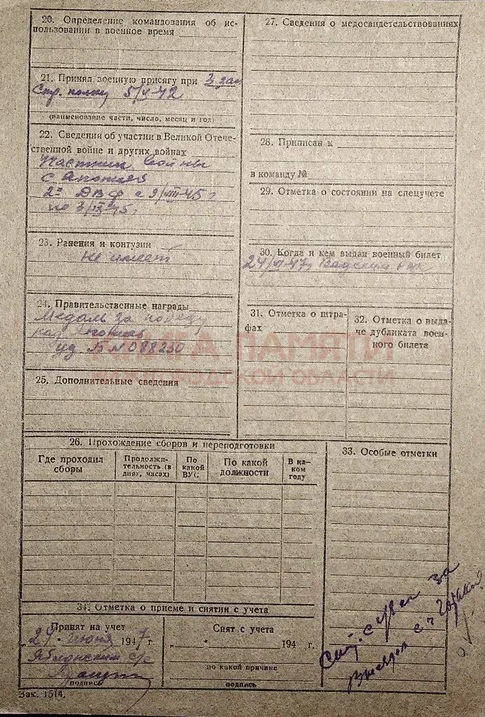 20. Определение командования об ис-
пользовании в военное время
21. Принял военную присягу при 3 зап
Стр. полку 5/VI-42
(наименование части, число, месяц и год)
22. Сведения об участии в Великой Отече-
ственной войне и других войнах
Участник войны
с Японией
2й ДВФ с 9/VIII-45 г
по 3/IX-45 г.
23. Ранения и контузии
Не имеет
24. Правительственные награды
Медаль за победу
над Японией
уд. № 088230
25. Дополнительные сведения
27. Сведения о медосвидетельствованиях
28. Приписан к
в команду №
29. Отметка о состоянии на спецучете
30. Когда и кем выдан военный билет
24/VI-47г Вадским РВК
31. Отметка о штра-
фах
32. Отметка о выда-
че дубликата воен-
ного билета
ПАМЯТИ
ОБЛАСТИ
26. Прохождение сборов и переподготовки
Где проходил
сборы
Продолжи-
тельность (в
днях, часах)
По
какой
ВУС.
По какой
должности
В ка-
ком
году
33. Особые отметки
34. Отметка о приеме и снятии с учета
Принят на учет
24 июня 1947 г.
с/с
подпись
Снят с учета
194 г.
по какой причине
подпись
Снят с учета за
выездом в г. Горький
Зак. 1514.